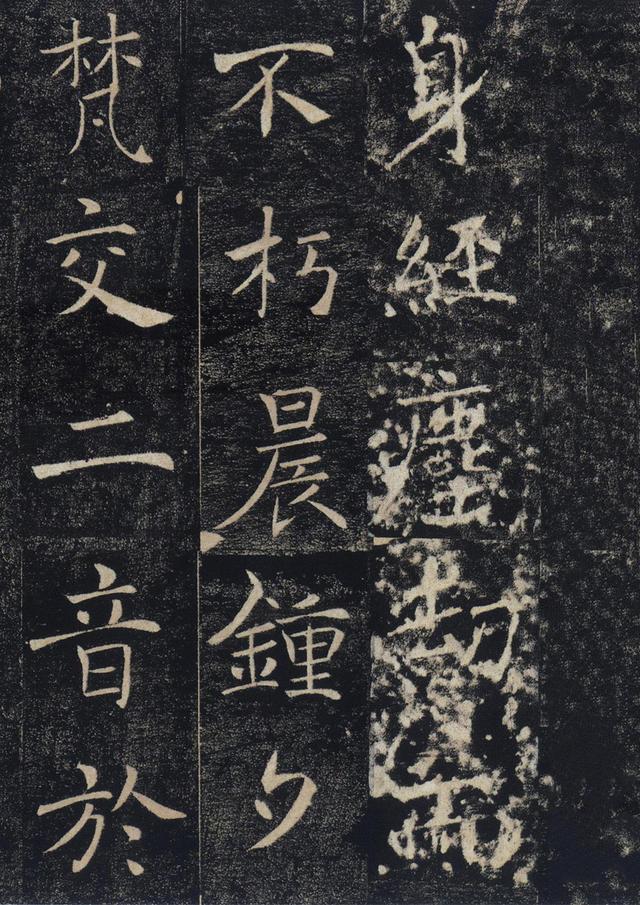 身經塵劫而
不朽晨鍾夕
梵交二音於